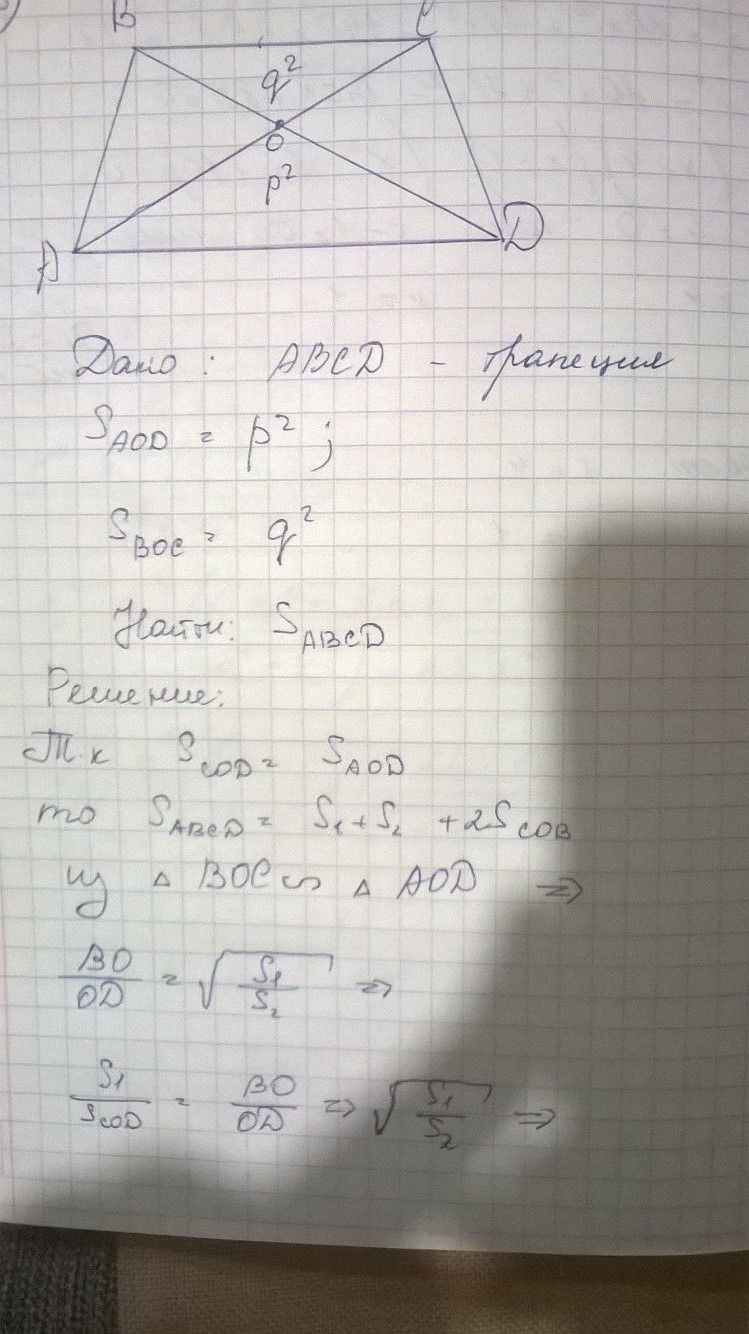 B C
q²
O
p²
A D
Дано: ABCD - трапеция
S_AOD = p²;
S_BOC = q²
Найти: S_ABCD
Решение:
Т.к S_COD = S_AOD
то S_ABCD = S₁ + S₂ + 2S_COB
из △ BOC ∽ △ AOD ⇒
BO/OD = √(S₁/S₂) ⇒
S₁/S_COD = BO/OD ⇒ √(S₁/S₂) ⇒